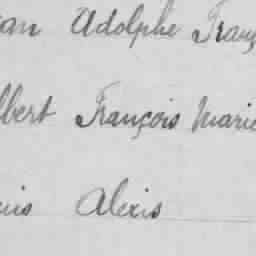 an Adolphe Franç
lbert François Marie
uis Alexis